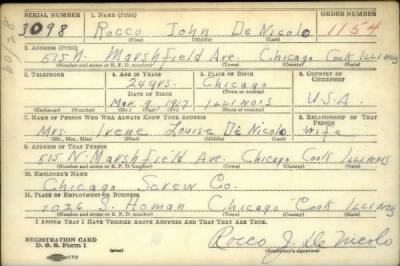 SERIAL NUMBER 1. NAME (Print) ORDER NUMBER
3098 Rocco John De Nicolo 1154
(First) (Middle) (Last)
2. ADDRESS (Print)
515 N. Marshfield Ave. Chicago Cook ILLINOIS
(Number and street or R. F. D. number) (Town) (County) (State)
3. TELEPHONE 4. AGE IN YEARS 5. PLACE OF BIRTH 6. COUNTRY OF CITIZENSHIP
24 yrs. Chicago
DATE OF BIRTH (Town or county)
Mar. 9 1917 ILLINOIS U.S.A.
(Exchange) (Number) (Mo.) (Day) (Yr.) (State or country)
7. NAME OF PERSON WHO WILL ALWAYS KNOW YOUR ADDRESS 8. RELATIONSHIP OF THAT PERSON
Mrs. Irene Louise De Nicolo wife
(Mr., Mrs., Miss) (First) (Middle) (Last)
9. ADDRESS OF THAT PERSON
515 N. Marshfield Ave. Chicago Cook ILLINOIS
(Number and street or R. F. D. number) (Town) (County) (State)
10. EMPLOYER'S NAME
Chicago Screw Co.
11. PLACE OF EMPLOYMENT OR BUSINESS
1026 S. Homan Chicago Cook ILLINOIS
(Number and street or R. F. D. number) (Town) (County) (State)
I AFFIRM THAT I HAVE VERIFIED ABOVE ANSWERS AND THAT THEY ARE TRUE.
REGISTRATION CARD
D. S. S. Form 1 (over) Rocco J. De Nicolo
(Registrant's signature)